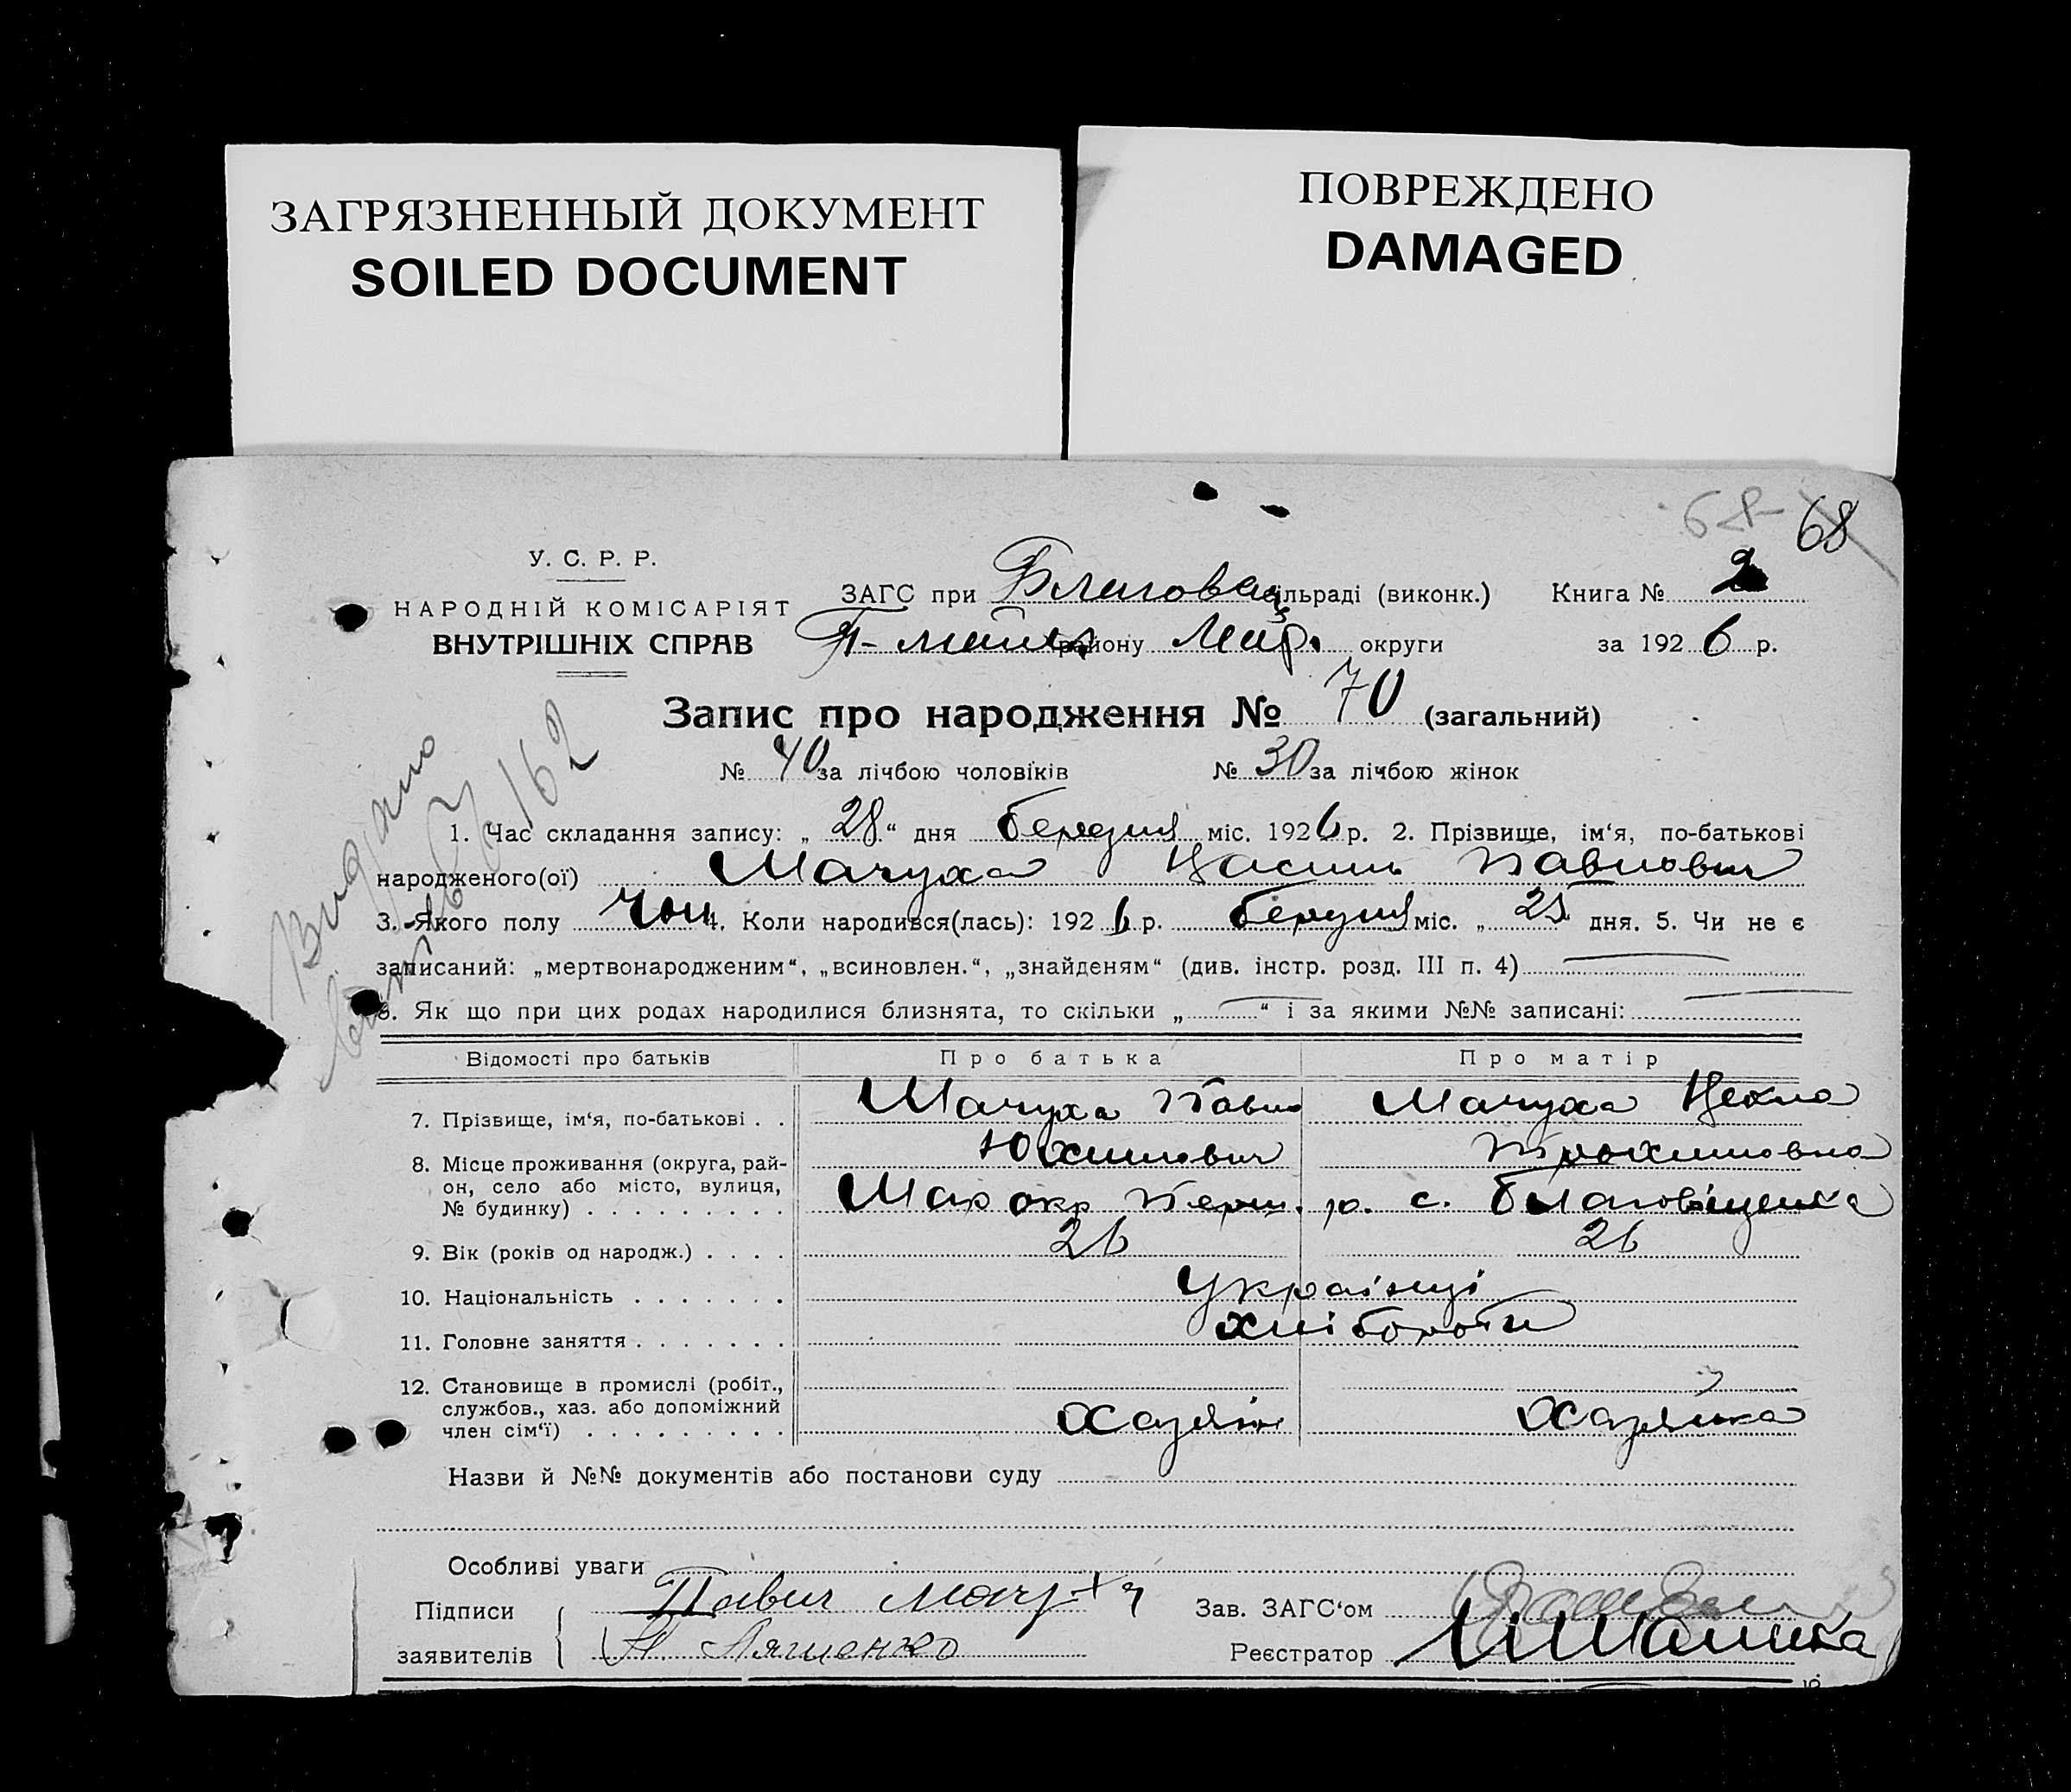 ЗАГРЯЗНЕННЫЙ ДОКУМЕНТ
SOILED DOCUMENT
ПОВРЕЖДЕНО
DAMAGED
68 68
У. С. Р. Р.
НАРОДНІЙ КОМІСАРІЯТ
ВНУТРІШНІХ СПРАВ
ЗАГС при Благовещ сільраді (виконк.) Книга № 2
району Мар. округи за 1926 р.
Запис про народження № 70 (загальний)
№ 40 за лічбою чоловіків № 30 за лічбою жінок
1. Час складання запису: „28“ дня березня міс. 1926 р. 2. Прізвище, ім‘я, по-батькові
народженого(ої) Мачуха Павлович
3. Якого полу чол 4. Коли народився(лась): 1926 р. березня міс. „25“ дня. 5. Чи не є
записаний: „мертвонародженим“, „всиновлен.“, „знайденям“ (див. інстр. розд. III п. 4)
6. Як що при цих родах народилися близнята, то скільки „ “ і за якими №№ записані:
Відомості про батьків Про батька Про матір
7. Прізвище, ім‘я, по-батькові . . Мачуха Павло Мачуха
Юхимович Трохимовна
8. Місце проживання (округа, рай-
он, село або місто, вулиця,
№ будинку) . . . . . . . . . Мар окр Перш. р. с. Благовіщенка
9. Вік (років од народж.) . . . . 26 26
10. Національність . . . . . . . Українці
11. Головне заняття . . . . . . . хлібороби
12. Становище в промислі (робіт.,
службов., хаз. або допоміжний
член сім‘ї) . . . . . . . . . Хазяїн Хазяйка
Назви й №№ документів або постанови суду
Особливі уваги
Підписи Павил Мачуха Зав. ЗАГС‘ом
заявителів Н. Ляшенко Реєстратор
Видано
162